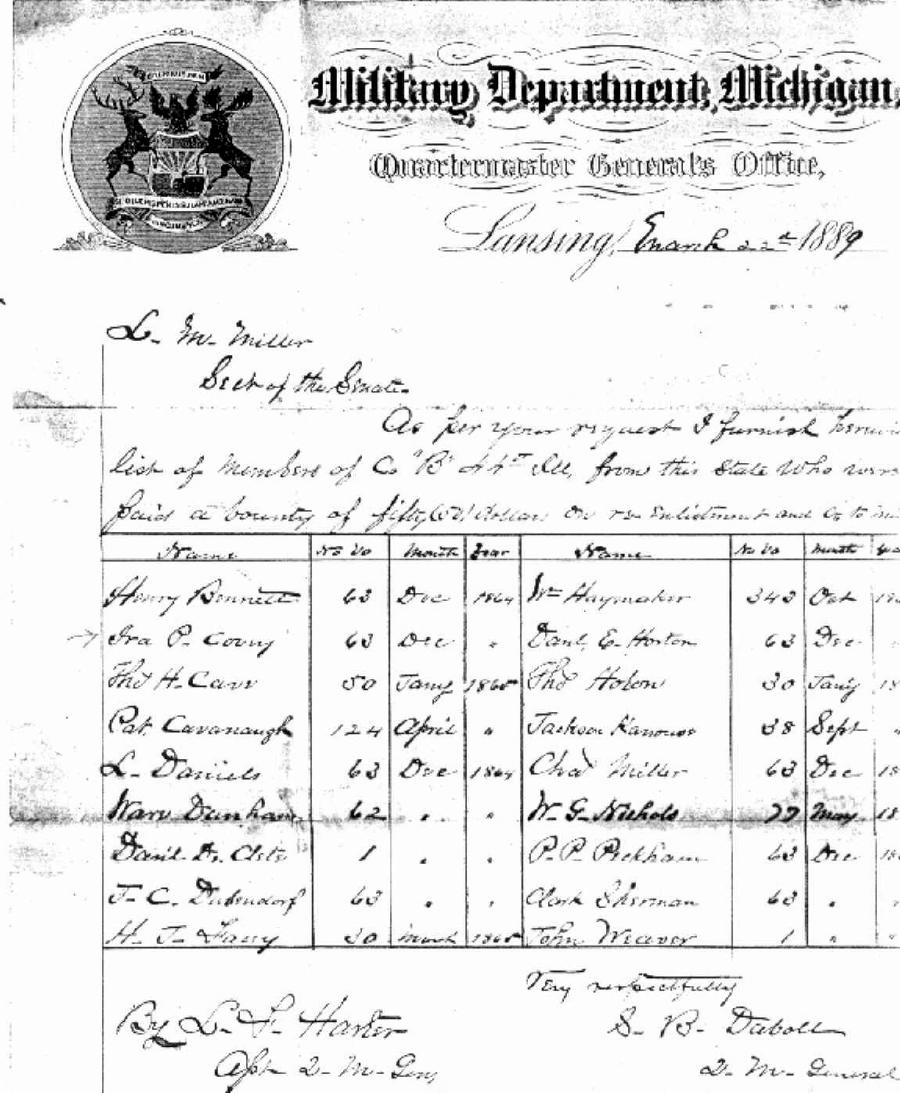 Military Department, Michigan,
Quartermaster General's Office,
Lansing, March 22d 1889
L. M. Miller
Sect of the Senate.
As per your request I furnish herewi
list of Members of Co "B" 44th Ill, from this State who were
paid a bounty of fifty dollars on re-enlistment and
Name No Vo Month Year Name No Vo Month
Henry Bennett 63 Dec 1864 Wm Haymaker 343 Oct
Ira P. 63 Dec " Danl. E. Horton 63 Dec
Thos H. Carr 50 Jany 1865 Thos 30 Jany 18
Pat. Cavanaugh 124 April " Jackson 38 Sept
L. Daniels 63 Dec 1864 Chas Miller 63 Dec 18
Ward Dunham 62 " " W. G. Nichols 77 May 18
1 " " P. P. Peckham 63 Dec
J. C. Dubendorf 63 " " Clark Sherman 63 "
H. J. 30 March 1865 John Weaver 1 "
Very respectfully
By L. F. Harter S. B. Daboll
Asst Q. M. Gen, Q. M. General